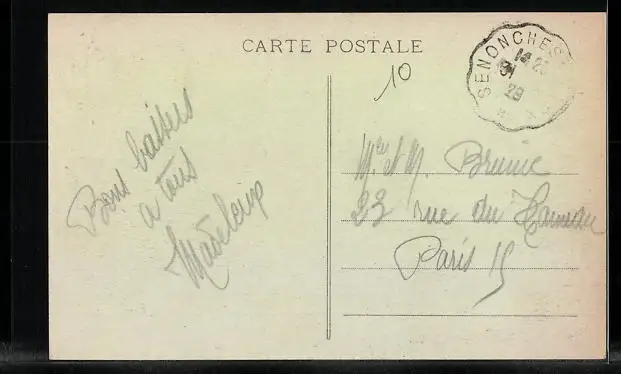 CARTE POSTALE
SENONCHES
14 23
31
29
10
Bons baisers
a tous
Mme et M. Brunie
23 rue du Hameau
Paris 15